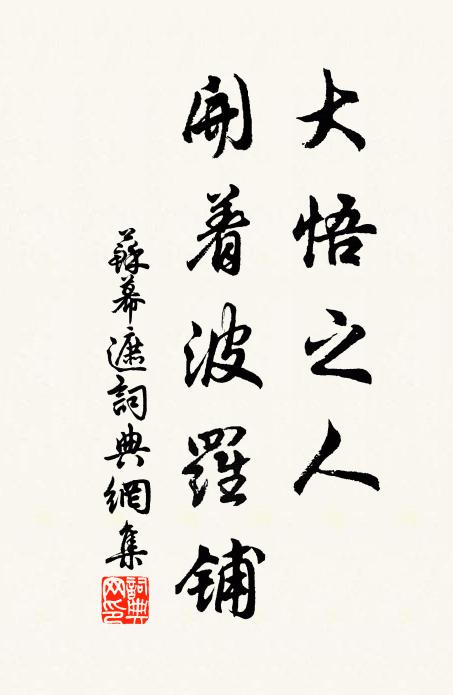 大悟之人
開着波羅鋪
蘇幕遮詞典網集
詞典網印